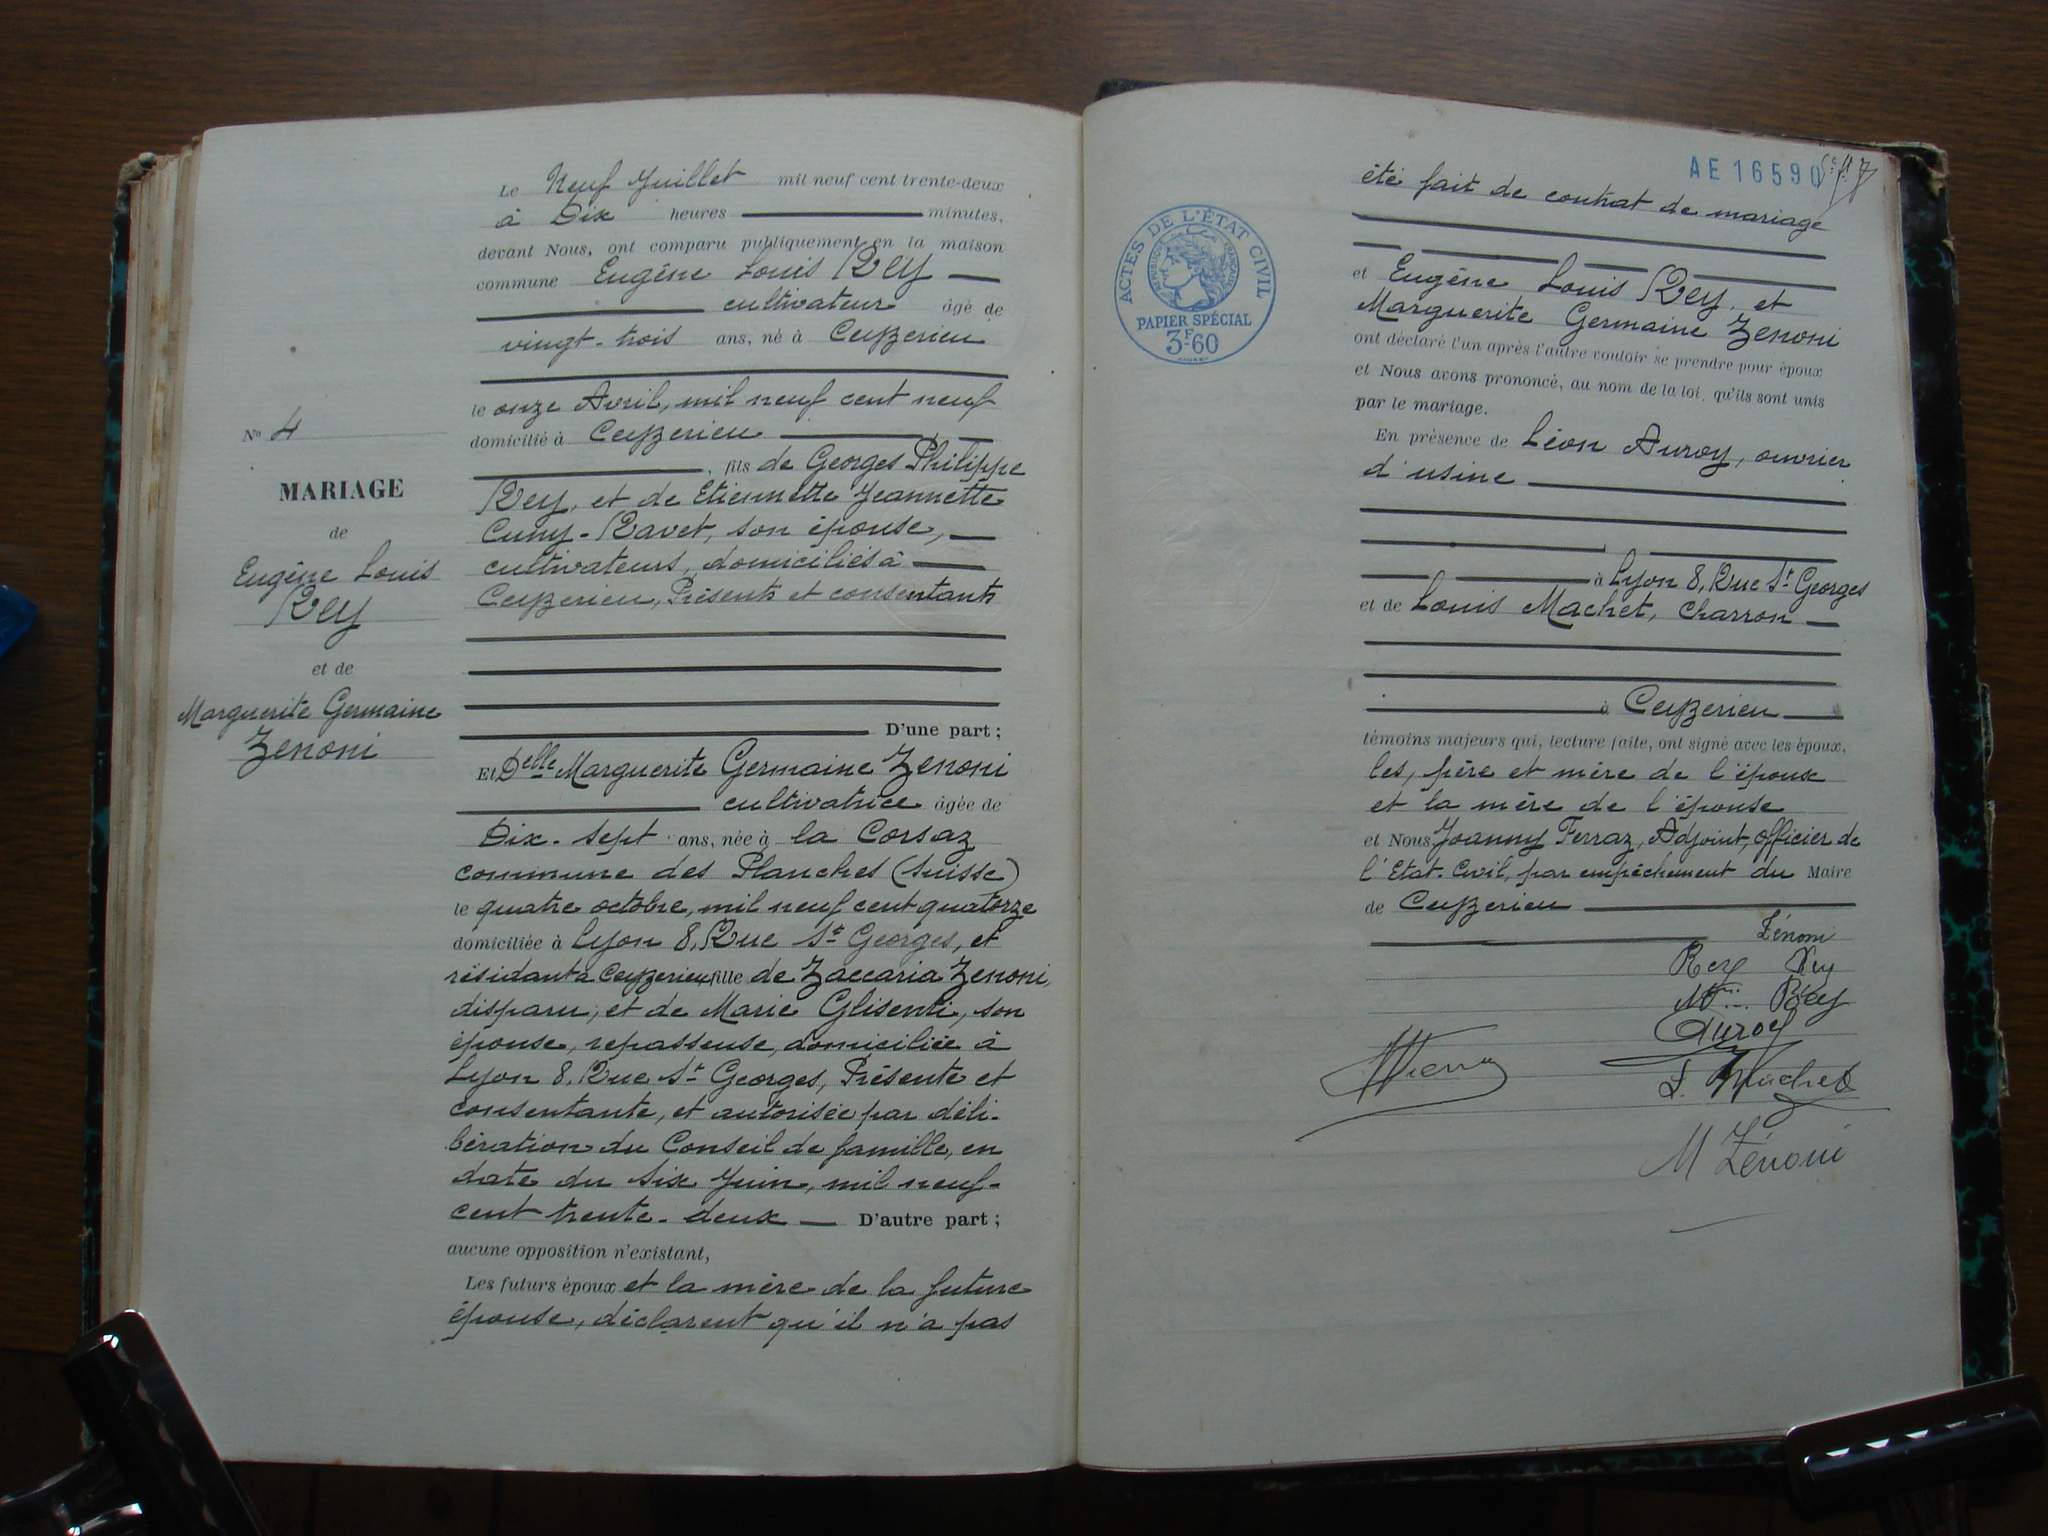 Le Neuf Juillet mil neuf cent trente-deux
à Dix heures minutes,
devant Nous, ont comparu publiquement en la maison
commune Eugène Louis Rey
cultivateur âgé de
vingt-trois ans, né à Ceyzerieu
le onze Avril, mil neuf cent neuf
domicilié à Ceyzerieu
, fils de Georges Philippe
Rey, et de Etiennette Jeannette
Cuny-Ravet, son épouse,
cultivateurs, domiciliés à
Ceyzerieu, Présents et consentants
D'une part ;
Et Delle Marguerite Germaine Zenoni
cultivatrice âgée de
Dix-sept ans, née à la Corsaz
commune des Planches (Suisse)
le quatre octobre, mil neuf cent quatorze
domiciliée à Lyon 8, Rue St Georges, et
résidant à Ceyzerieu, fille de Zaccaria Zenoni,
disparu, et de Marie Glisenti, son
épouse, repasseuse, domiciliée à
Lyon 8, Rue St Georges, Présente et
consentante, et autorisée par déli-
bération du Conseil de famille, en
date du Six Juin, mil neuf-
cent trente-deux D'autre part ;
aucune opposition n'existant,
Les futurs époux et la mère de la future
épouse, déclarent qu'il n'a pas
No 4
MARIAGE
de
Eugène Louis
Rey
et de
Marguerite Germaine
Zenoni
AE 16590
été fait de contrat de mariage
ACTES DE L'ÉTAT CIVIL
RÉPUBLIQUE FRANÇAISE
PAPIER SPÉCIAL
3F60
et Eugène Louis Rey, et
Marguerite Germaine Zenoni
ont déclaré l'un après l'autre vouloir se prendre pour époux
et Nous avons prononcé, au nom de la loi, qu'ils sont unis
par le mariage.
En présence de Léon Auroy, ouvrier
d'usine
à Lyon 8, Rue St Georges
et de Louis Machet, Charron
à Ceyzerieu
témoins majeurs qui, lecture faite, ont signé avec les époux,
les, père et mère de l'époux
et la mère de l'épouse
et Nous Joanny Ferraz, Adjoint, officier de
l'Etat-Civil, par empêchement du Maire
de Ceyzerieu
Zénoni
Rey Rey
Rey
Auroy
L. Machet
M Zénoni